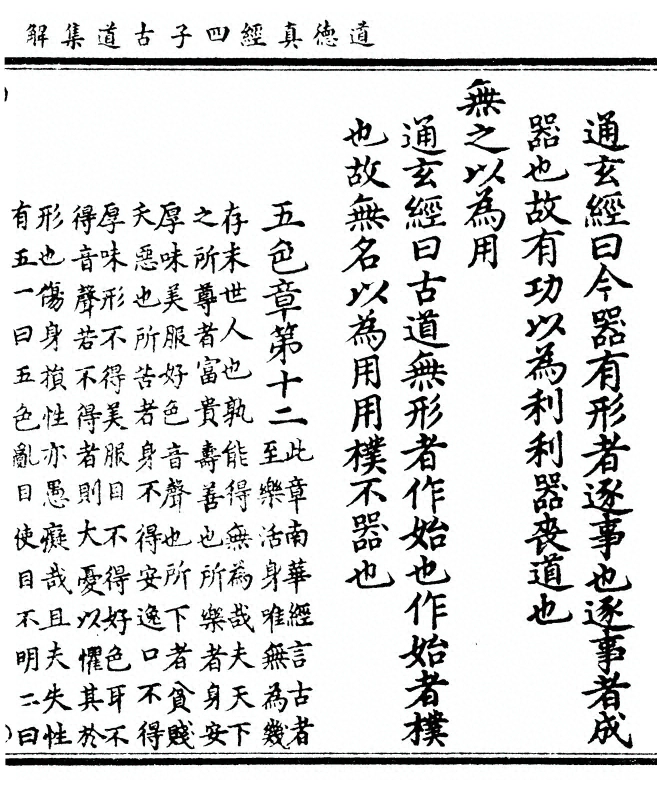 道德真經四子古道集解
通玄經曰今器有形者逐事也逐事者成
器也故有功以為利利器喪道也
無之以為用
通玄經曰古道無形者作始也作始者樸
也故無名以為用用樸不器也
五色章第十二
此章南華經言古者
至樂活身唯無為幾
存末世人也孰能得無為哉夫天下
之所尊者富貴壽善也所樂者身安
厚味美服好色音聲也所下者貧賤
夭惡也所苦者身不得安逸口不得
厚味形不得美服目不得好色耳不
得音聲若不得者則大憂以懼其於
形也傷身損性亦愚癡哉且夫失性
有五一曰五色亂目使目不明二曰